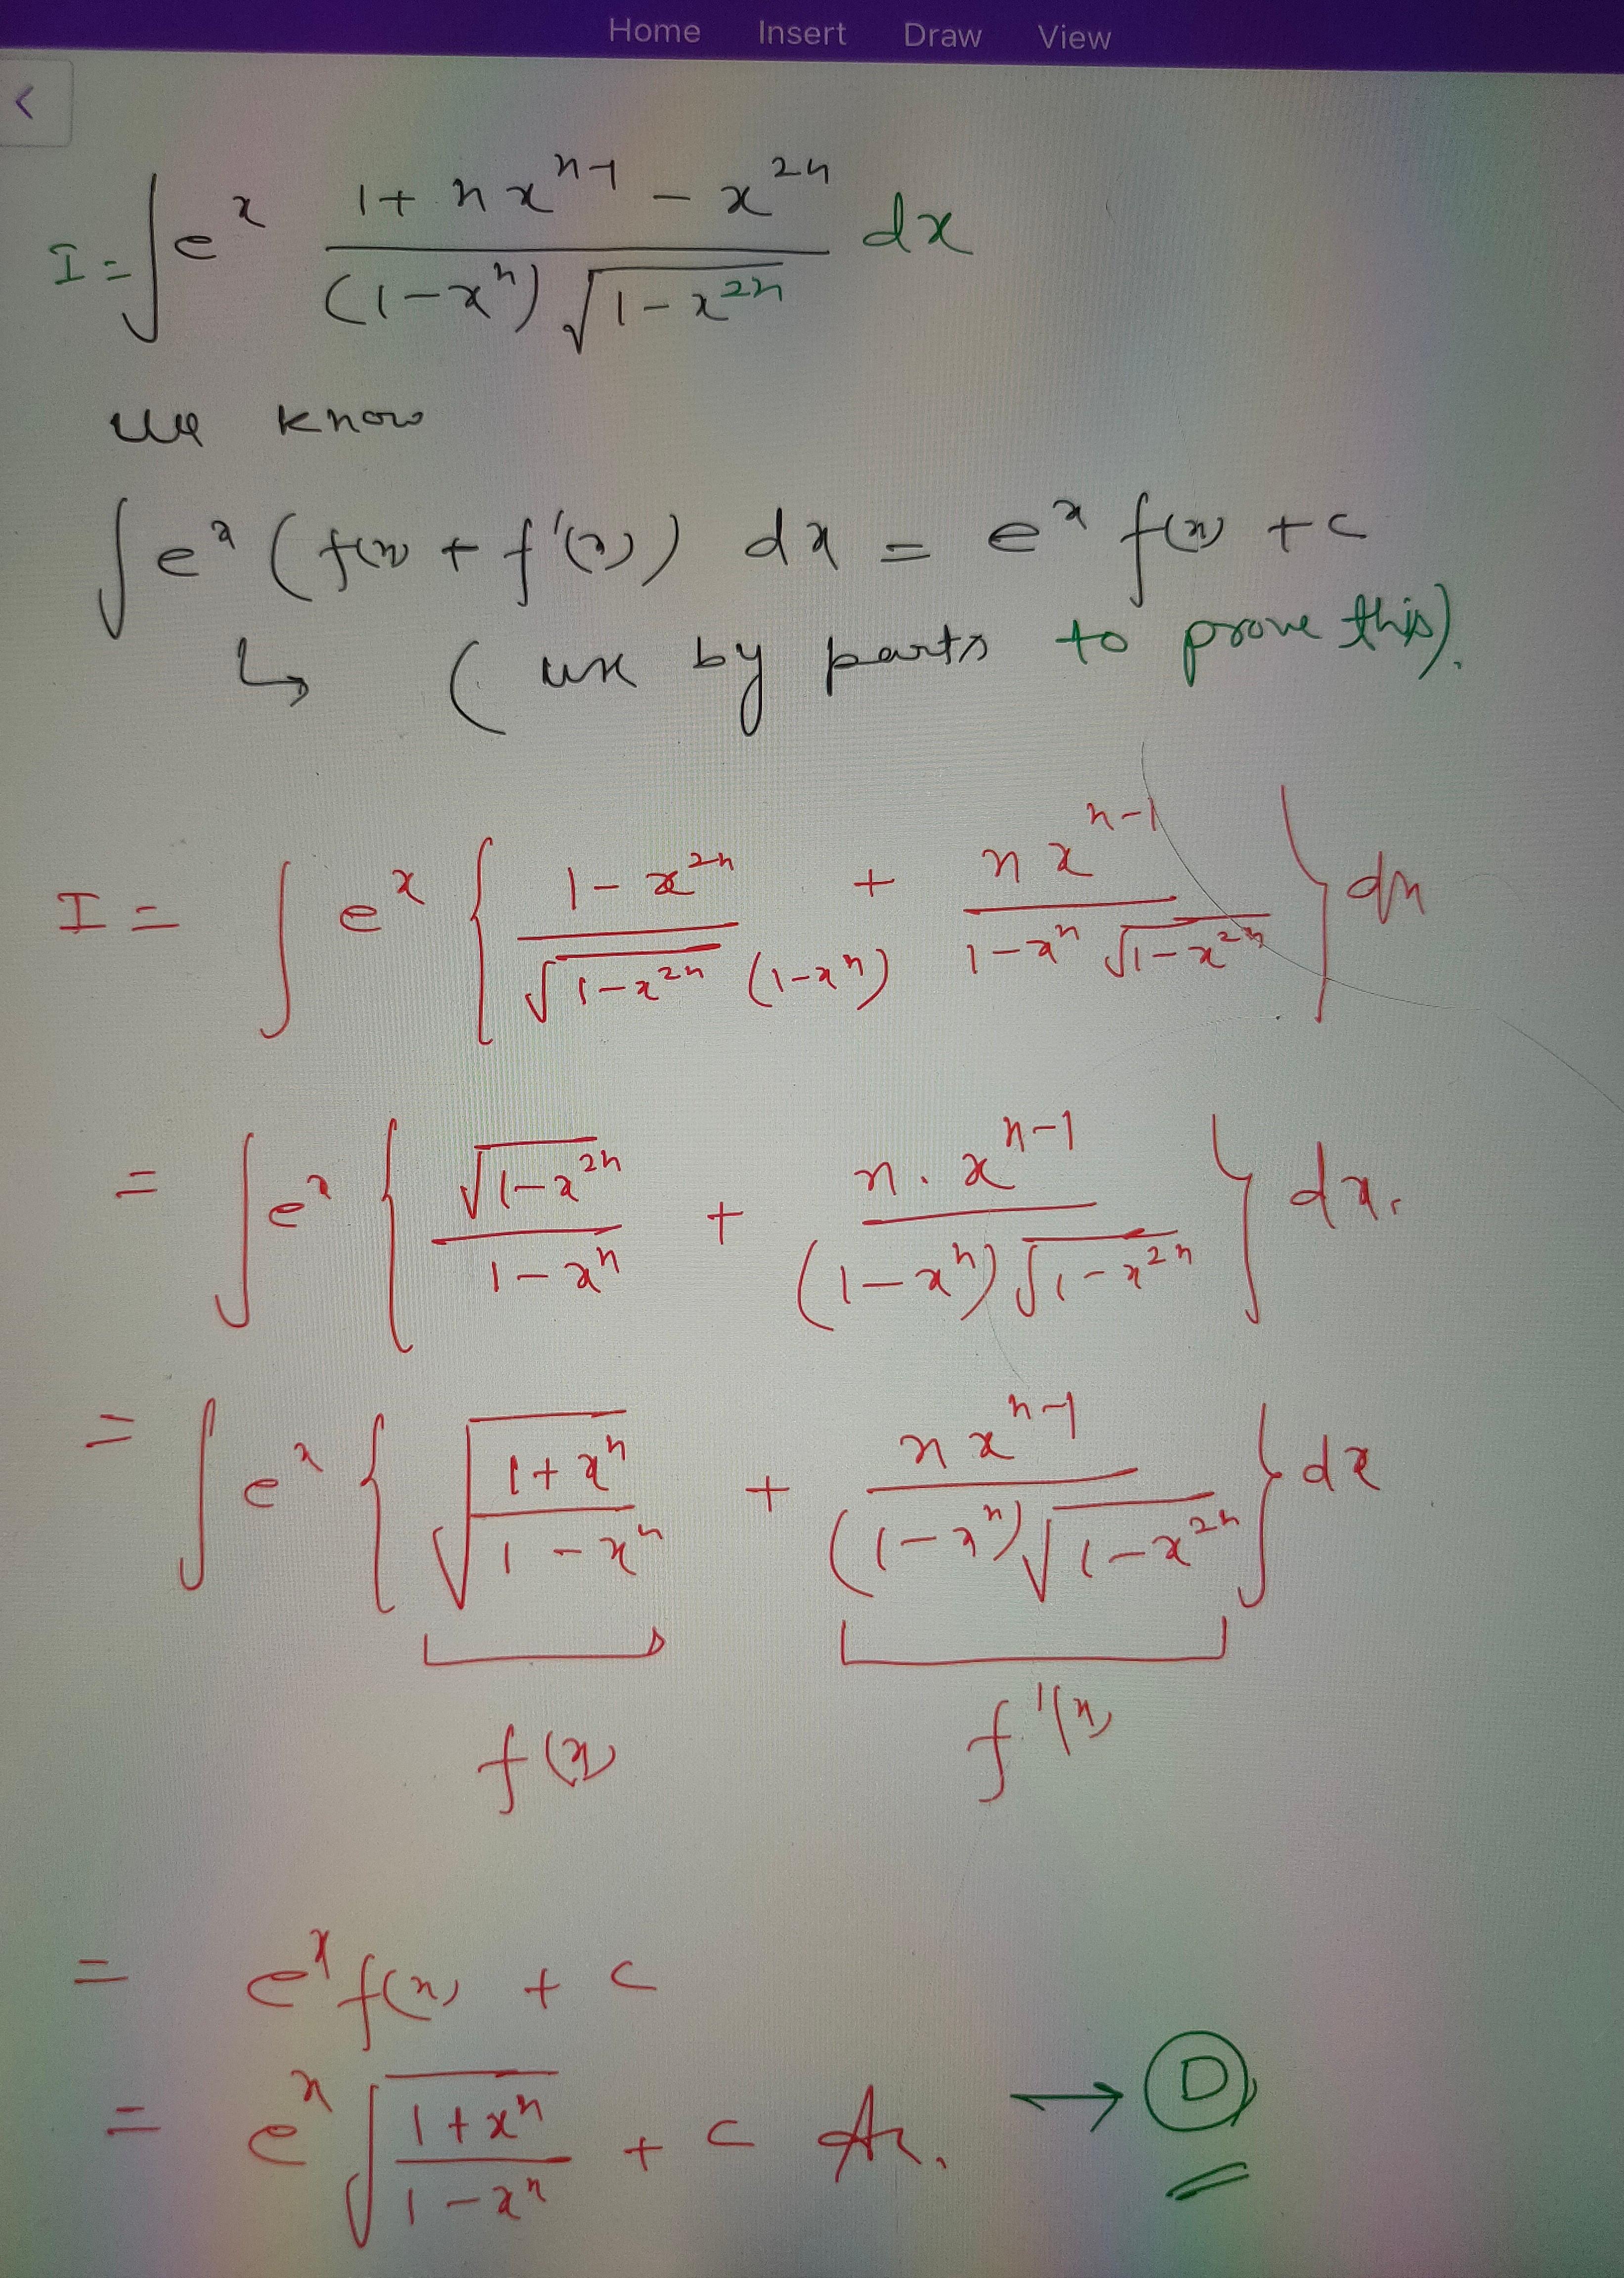 Home Insert Draw View
<
I = ∫ e^x (1 + n x^(n-1) - x^(2n)) / ((1 - x^n) √(1 - x^(2n))) dx
we know
∫ e^x (f(x) + f'(x)) dx = e^x f(x) + c
↳ (use by parts to prove this).
I = ∫ e^x { (1 - x^(2n)) / (√(1 - x^(2n)) (1 - x^n)) + n x^(n-1) / (1 - x^n √(1 - x^(2n))) } dx
= ∫ e^x { √(1 - x^(2n)) / (1 - x^n) + n . x^(n-1) / ((1 - x^n) √(1 - x^(2n))) } dx.
= ∫ e^x { √((1 + x^n) / (1 - x^n)) + n x^(n-1) / ((1 - x^n) √(1 - x^(2n))) } dx
f(x) f'(x)
= e^x f(x) + c
= e^x √((1 + x^n) / (1 - x^n)) + c An. → D